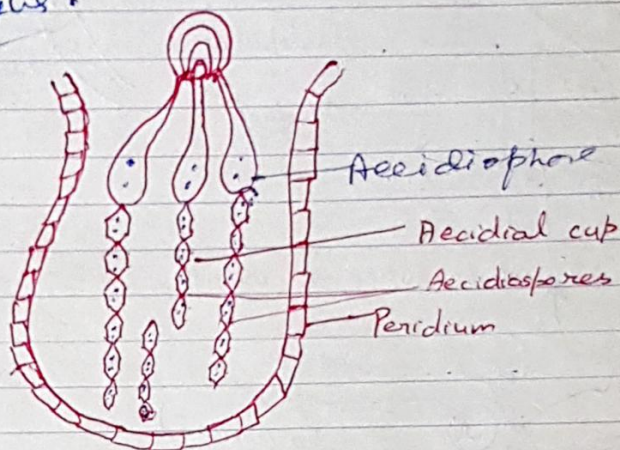 Aecidiophore
Aecidial cup
Aecidiospores
Peridium